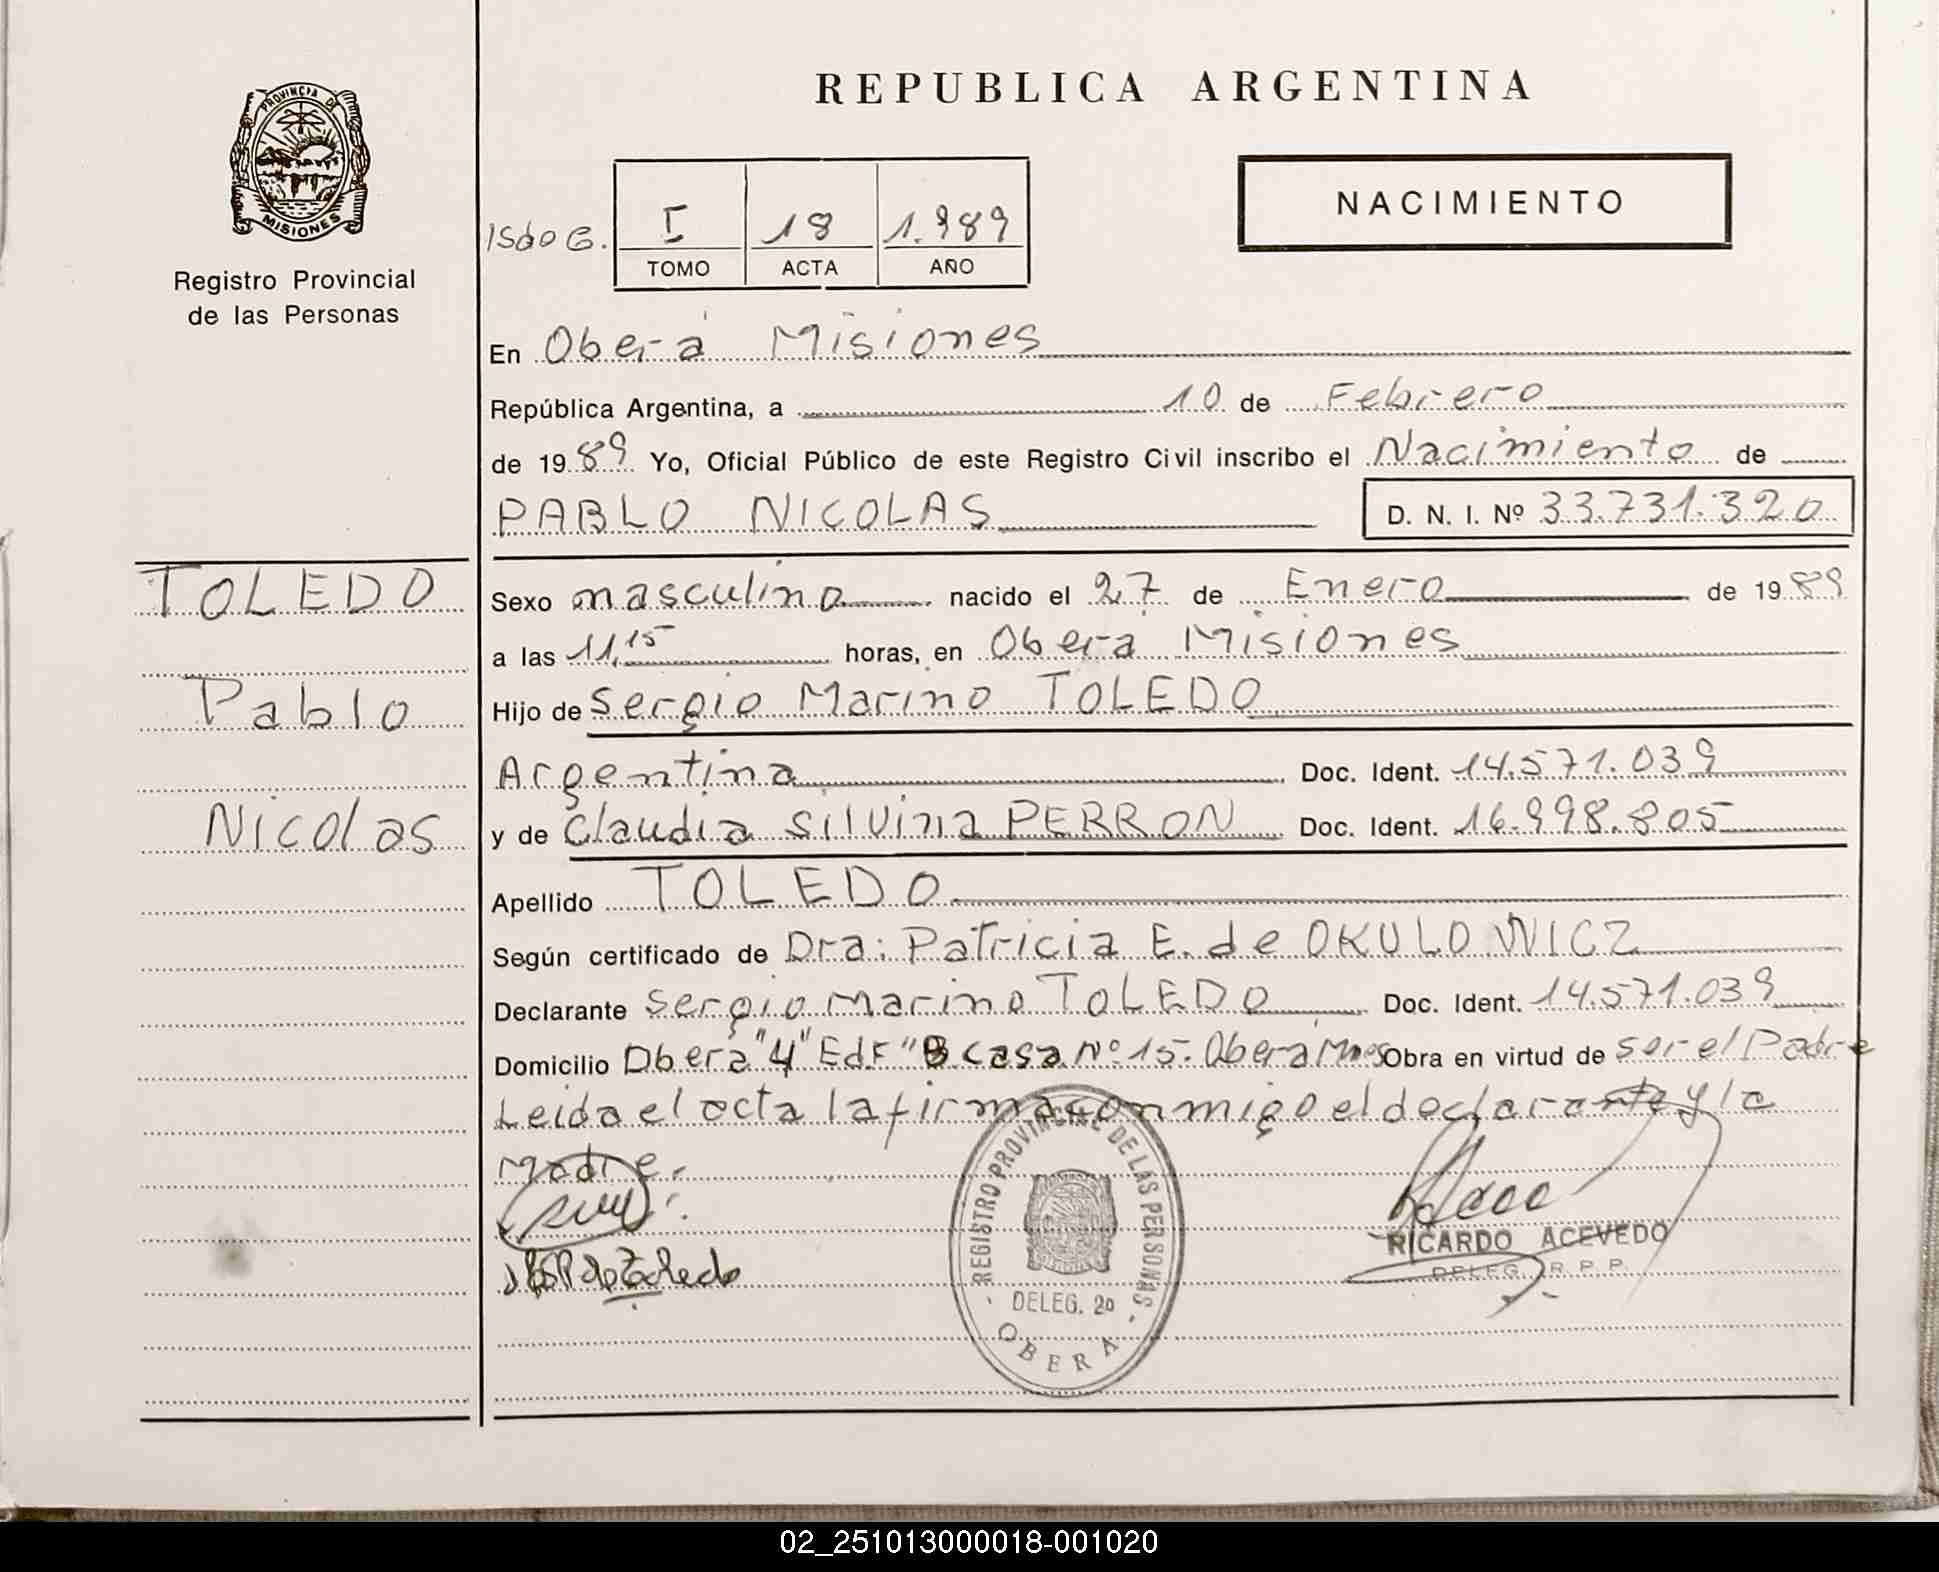 REPUBLICA ARGENTINA
PROVINCIA DE
MISIONES
Registro Provincial
de las Personas
NACIMIENTO
I 18 1.989
TOMO ACTA AÑO
En Oberá Misiones
República Argentina, a 10 de Febrero
de 1989 Yo, Oficial Público de este Registro Civil inscribo el Nacimiento de
PABLO NICOLAS D. N. I. Nº 33.731.320
TOLEDO
Pablo
Nicolas
Sexo masculino nacido el 27 de Enero de 1989
a las 11,15 horas, en Oberá Misiones
Hijo de Sergio Marino TOLEDO
Argentina Doc. Ident. 14.571.039
y de Claudia Silvina PERRON Doc. Ident. 16.998.805
Apellido TOLEDO
Según certificado de Dra: Patricia E. de OKULOWICZ
Declarante Sergio Marino TOLEDO Doc. Ident. 14.571.039
Domicilio Oberá "4" Edf "B casa Nº 15. Oberá Mnes Obra en virtud de ser el Padre
Leida el acta la firma conmigo el declarante y la
Madre.
de Toledo
REGISTRO PROVINCIAL DE LAS PERSONAS
DELEG. 20
OBERA
RICARDO ACEVEDO
DELEG. R. P. P.
02_251013000018-001020